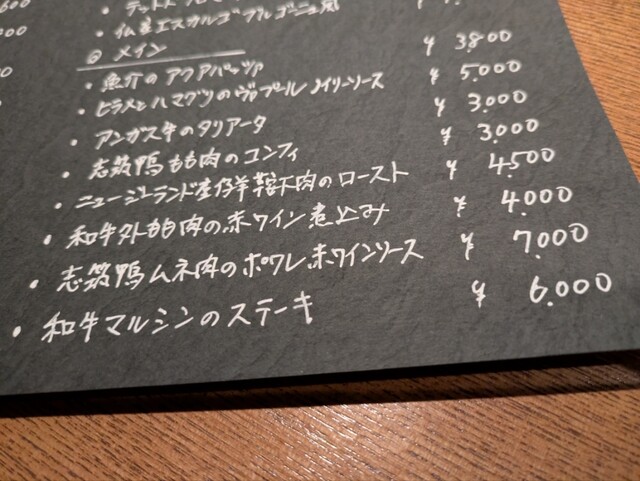 ・仏産エスカルゴ ブルゴーニュ風
◎ メイン
・魚介のアクアパッツァ ¥ 3.800
・ヒラメとハマグリのヴァプール ノイリーソース ¥ 5.000
・アンガス牛のタリアータ ¥ 3.000
・志筑鴨もも肉のコンフィ ¥ 3.000
・ニュージーランド産仔羊鞍下肉のロースト ¥ 4.500
・和牛外もも肉の赤ワイン煮込み ¥ 4.000
・志筑鴨ムネ肉のポワレ 赤ワインソース ¥ 7.000
・和牛マルシンのステーキ ¥ 6.000